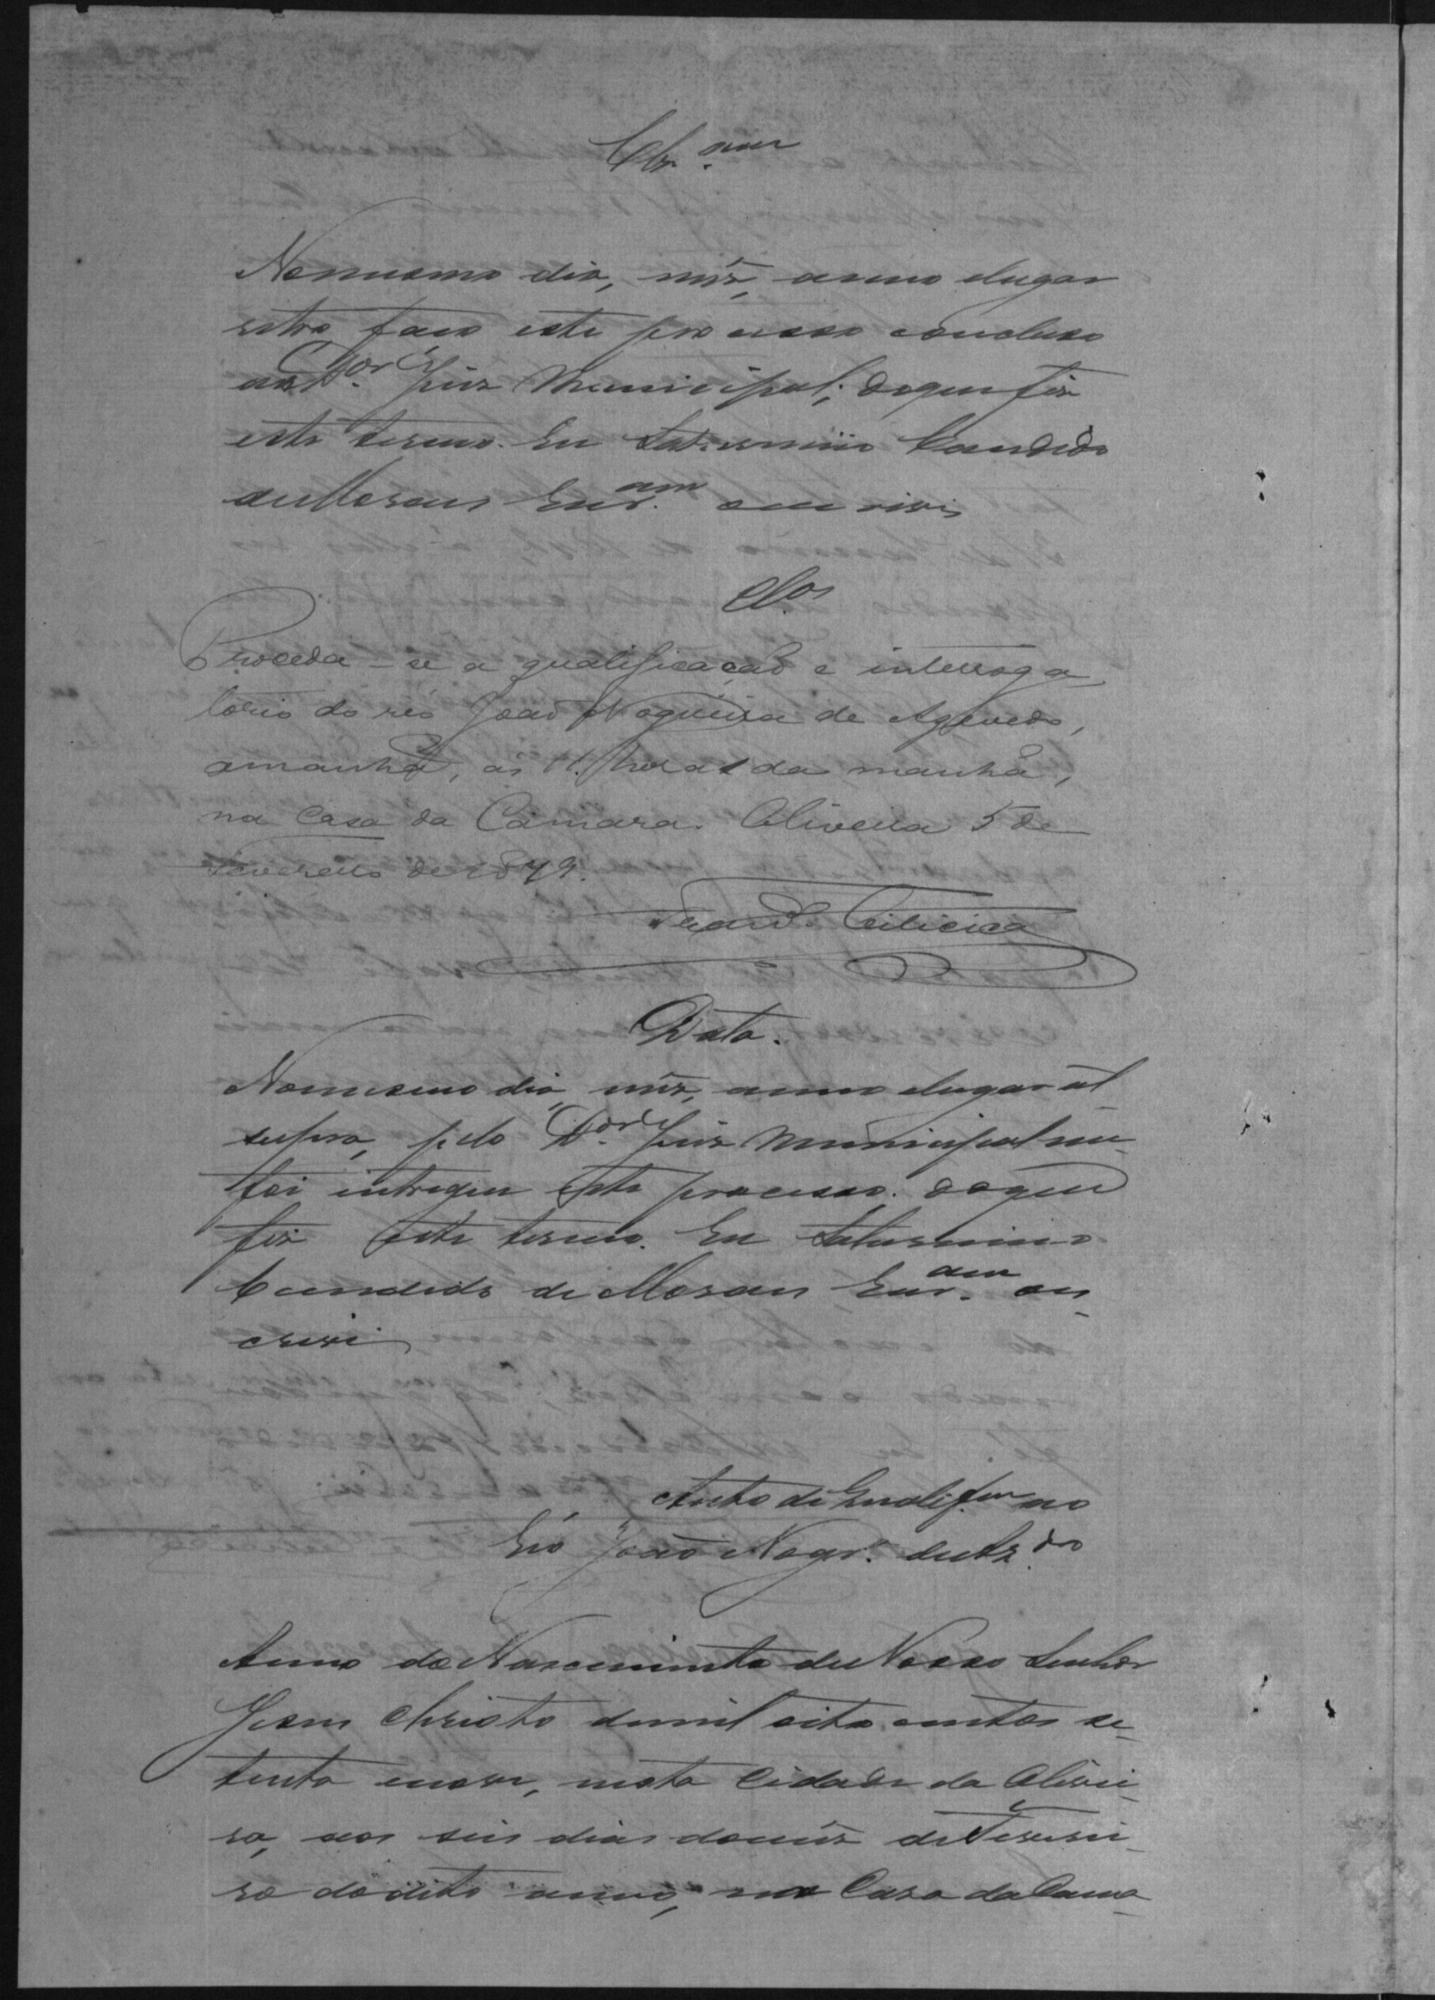 Cl.am
Nomesmo dia, mêz, anno elugar
retro faço este processo concluso
ao Dor. Juiz Municipal; doque fiz
este termo. Eu Saturnino Candido
deMoraes Escr.am oescrivi
Cl.os
Proceda-se a qualificação e interroga
torio do réo João Nogueira de Azevedo,
amanhã, as 11 horas da manhã,
na casa da Camara. Oliveira 5 de
Fevereiro de 1879.
Data.
Nomesmo dia, mêz, anno elugar ut
supra, pelo Dor. Juiz Municipal me
foi entregue este processo. doque
fiz este termo. Eu Saturnino
Candido de Moraes Escr.am oes-
crivi
Auto de Qualif.am ao
Réo João Nogr.a deAz.do
Anno do Nascimento deNosso Senhor
Jesus Christo demil oito centos se-
tenta enove, nesta Cidade da Olivei-
ra, aos seis dias domêz deFeverei-
ro dodito anno, na Casa daCama-